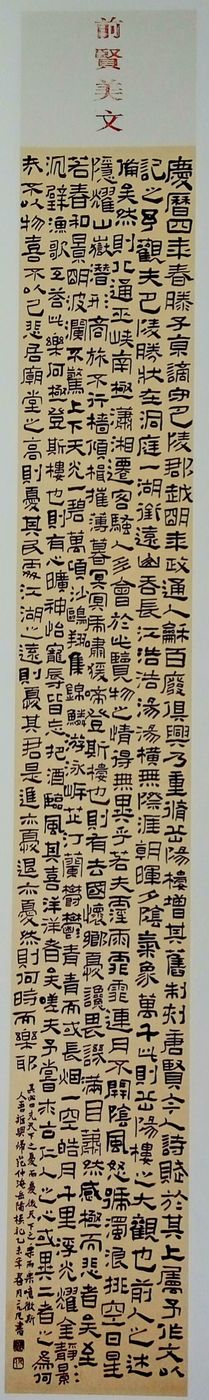 前賢美文
慶曆四年春滕子京謫守巴陵郡越明年政通人龢百廢俱興乃重脩岳陽樓增其舊制刻唐賢今人詩賦於其上屬予作文以
記之予觀夫巴陵勝狀在洞庭一湖銜遠山吞長江浩浩湯湯橫無際涯朝暉夕陰氣象萬千此則岳陽樓之大觀也前人之述
備矣然則北通巫峽南極瀟湘遷客騷人多會於此覽物之情得無異乎若夫霪雨霏霏連月不開陰風怒號濁浪排空日星
隱耀山嶽潛形商旅不行檣傾楫摧薄暮冥冥虎嘯猨啼登斯樓也則有去國懷鄉憂讒畏譏滿目蕭然感極而悲者矣至
若春和景明波瀾不驚上下天光一碧萬頃沙鷗翔集錦鱗游泳岸芷汀蘭鬱鬱青青而或長烟一空皓月千里浮光耀金靜景
沉璧漁歌互荅此樂何極登斯樓也則有心曠神怡寵辱皆忘把酒臨風其喜洋洋者矣嗟夫予嘗求古仁人之心或異二者之為何
哉不以物喜不以己悲居廟堂之高則憂其民處江湖之遠則憂其君是進亦憂退亦憂然則何時而樂耶
其必曰先天下之憂而憂後天下之樂而樂噫微斯
人吾誰與歸范仲淹岳陽樓記乙未年